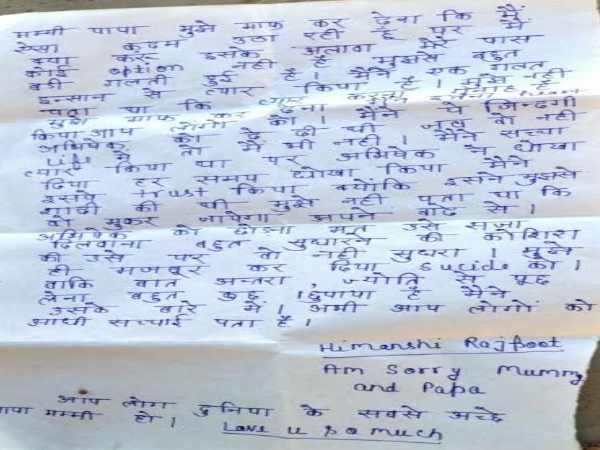 मम्मी पापा मुझे माफ कर देना कि मैं
ऐसा कदम उठा रही हूं पर मैं
क्या करू इसके अलावा मेरे पास
कोई option नही है मुझसे बहुत
बडी गलती हुई है। मैंने एक गलत
इन्सान से प्यार किया है। मुझे नही
पता था कि प्यार करना
मुझे माफ कर देना मैंने ये
किया आप लोगो को। जिन्दगी
अभिषेक का दे दी थी जब वो नही
life में तो मैं भी नही। मैंने सच्चा
प्यार किया था पर अभिषेक ने धोखा
दिया हर समय धोखा किया मैंने
इसपे trust किया क्योंकि इसने मुझसे
शादी की थी मुझे नही पता था कि
वो मुकर जायेगा अपने वादे से।
अभिषेक को छोडना मत उसे सजा
दिलवाना बहुत सुधारने की कोशिश
की उसे पर वो नही सुधरा। मुझे
ही मजबूर कर दिया sucide को।
बाकि बात अन्तरा, ज्योति से पूछ
लेना बहुत कुछ छिपाया है मैंने
उसके बारे में। अभी आप लोगों को
आधी सच्चाई पता है।
Himanshi Rajpoot
Am Sorry Mummy
and Papa
आप लोग दुनिया के सबसे अच्छे
पापा मम्मी हो।
Love u so much